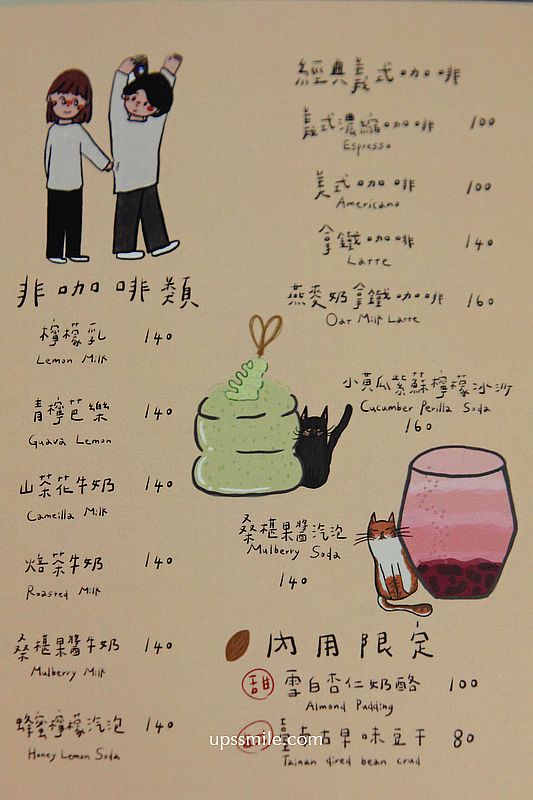 經典義式咖啡
義式濃縮咖啡 100
Espresso
美式咖啡 100
Americano
拿鐵咖啡 140
Latte
燕麥奶拿鐵咖啡 160
Oat Milk Latte
非咖啡類
檸檬乳 140
Lemon Milk
青檸芭樂 140
Guava Lemon
山茶花牛奶 140
Cameilla Milk
焙茶牛奶 140
Roasted Milk
桑椹果醬牛奶 140
Mulberry Milk
蜂蜜檸檬汽泡 140
Honey Lemon Soda
小黃瓜紫蘇檸檬冰沙
Cucumber Perilla Soda
160
桑椹果醬汽泡
Mulberry Soda
140
內用限定
甜 雪白杏仁奶酪 100
Almond Pudding
古早味豆干 80
Tainan dired bean crud
upssmile.com